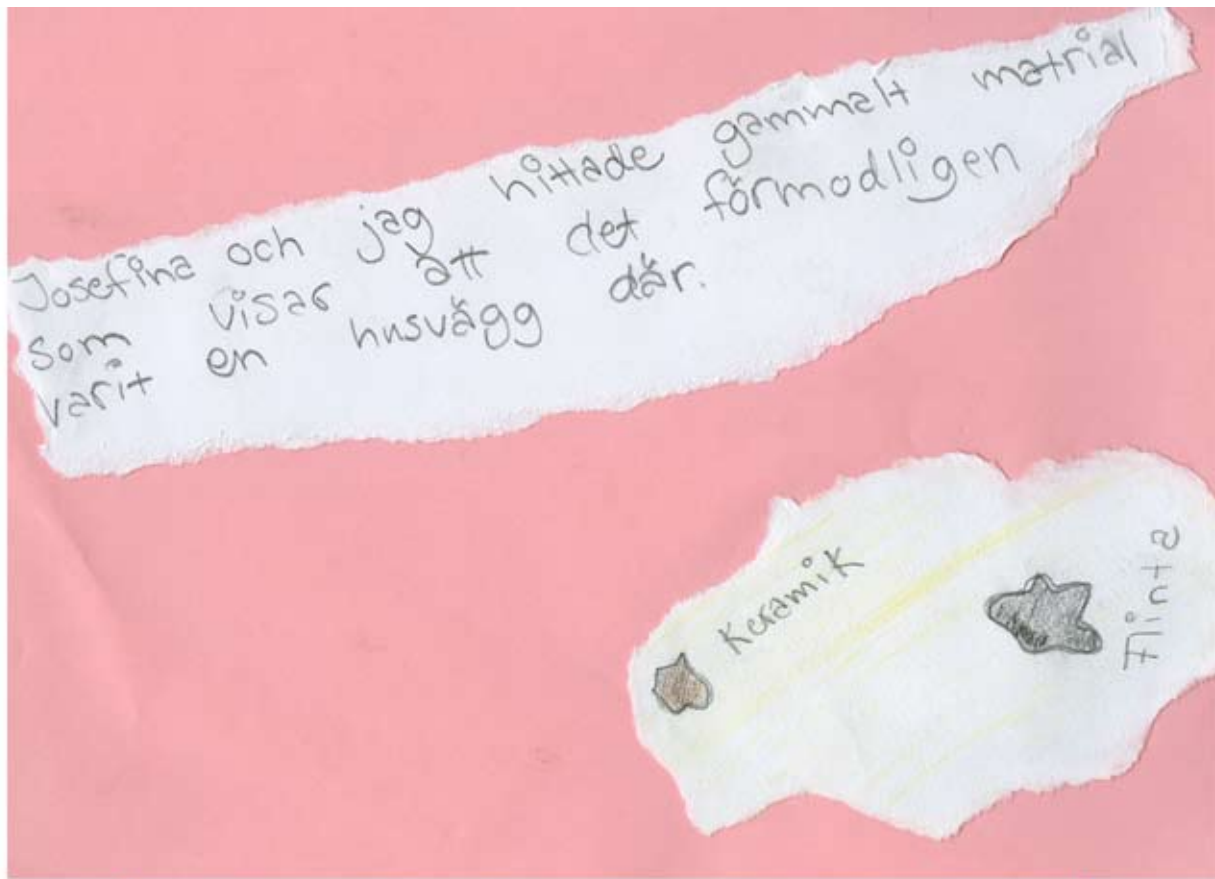 Josefina och jag hittade gammalt matrial
som visar att det förmodligen
varit en husvägg där.
Keramik
Flinta